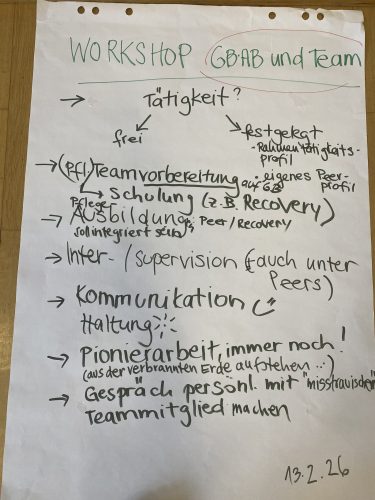 WORKSHOP GB·AB und Team
→ Tätigkeit?
frei
festgelegt
- Rahmentätigkeits-
profil
• eigenes Peer-
profil
→ (Pfl.) Teamvorbereitung auf GB
→ Schulung (z.B. Recovery)
→ Pfleger Ausbildung: Peer/Recovery
soll integriert sein
→ Inter-/Supervision (auch unter
Peers)
→ Kommunikation
Haltung
→ Pionierarbeit, immer noch!
(aus der verbrannten Erde aufstehen...)
→ Gespräch persönl. mit "misstrauischen"
Teammitglied machen
13.2.26